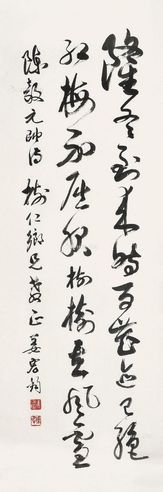 隆冬到来时百花迹已绝
红梅不屈服树树立风雪
陈毅元帅诗 树仁乡兄教正 姜